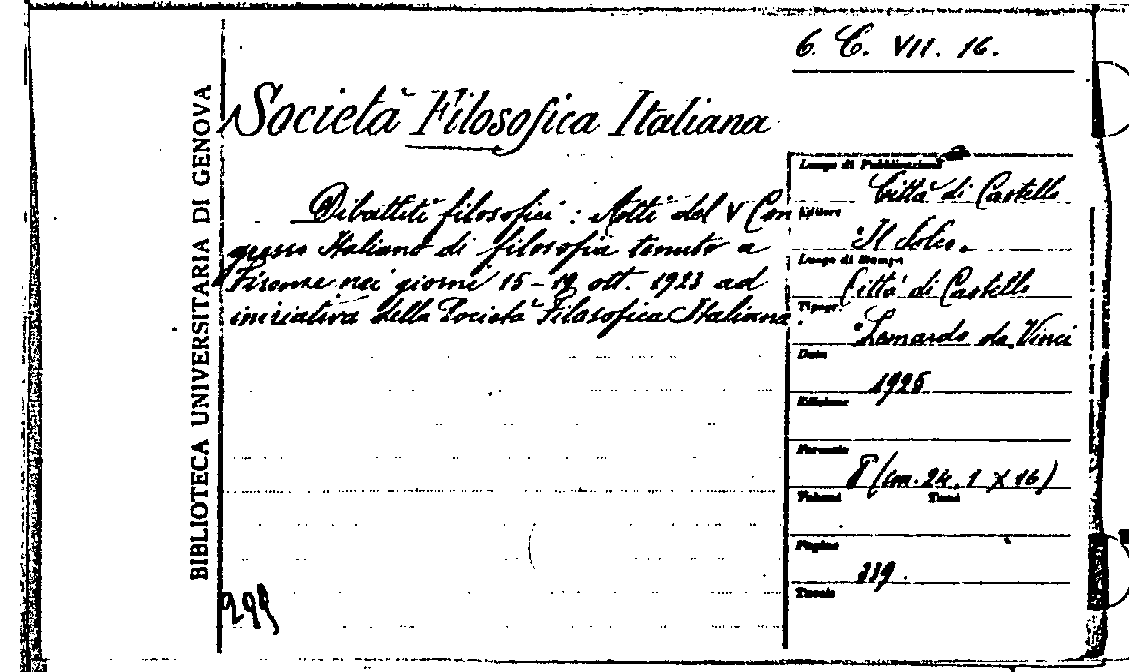 6. C. VII. 16.
BIBLIOTECA UNIVERSITARIA DI GENOVA
Società Filosofica Italiana
Dibattiti filosofici : Atti del V Con
gresso Italiano di filosofia tenuto a
Firenze nei giorni 15-19 ott. 1923 ad
iniziativa della Società Filosofica Italiana
Luogo di Pubblicazione
Città di Castello
Editore
Il Solco.
Luogo di Stampa
Città di Castello
Tipogr.
Leonardo da Vinci
Data
1925
Edizione
Formato
8° (cm. 24,1 X 16)
Volumi Tomi
Pagine
Tavole